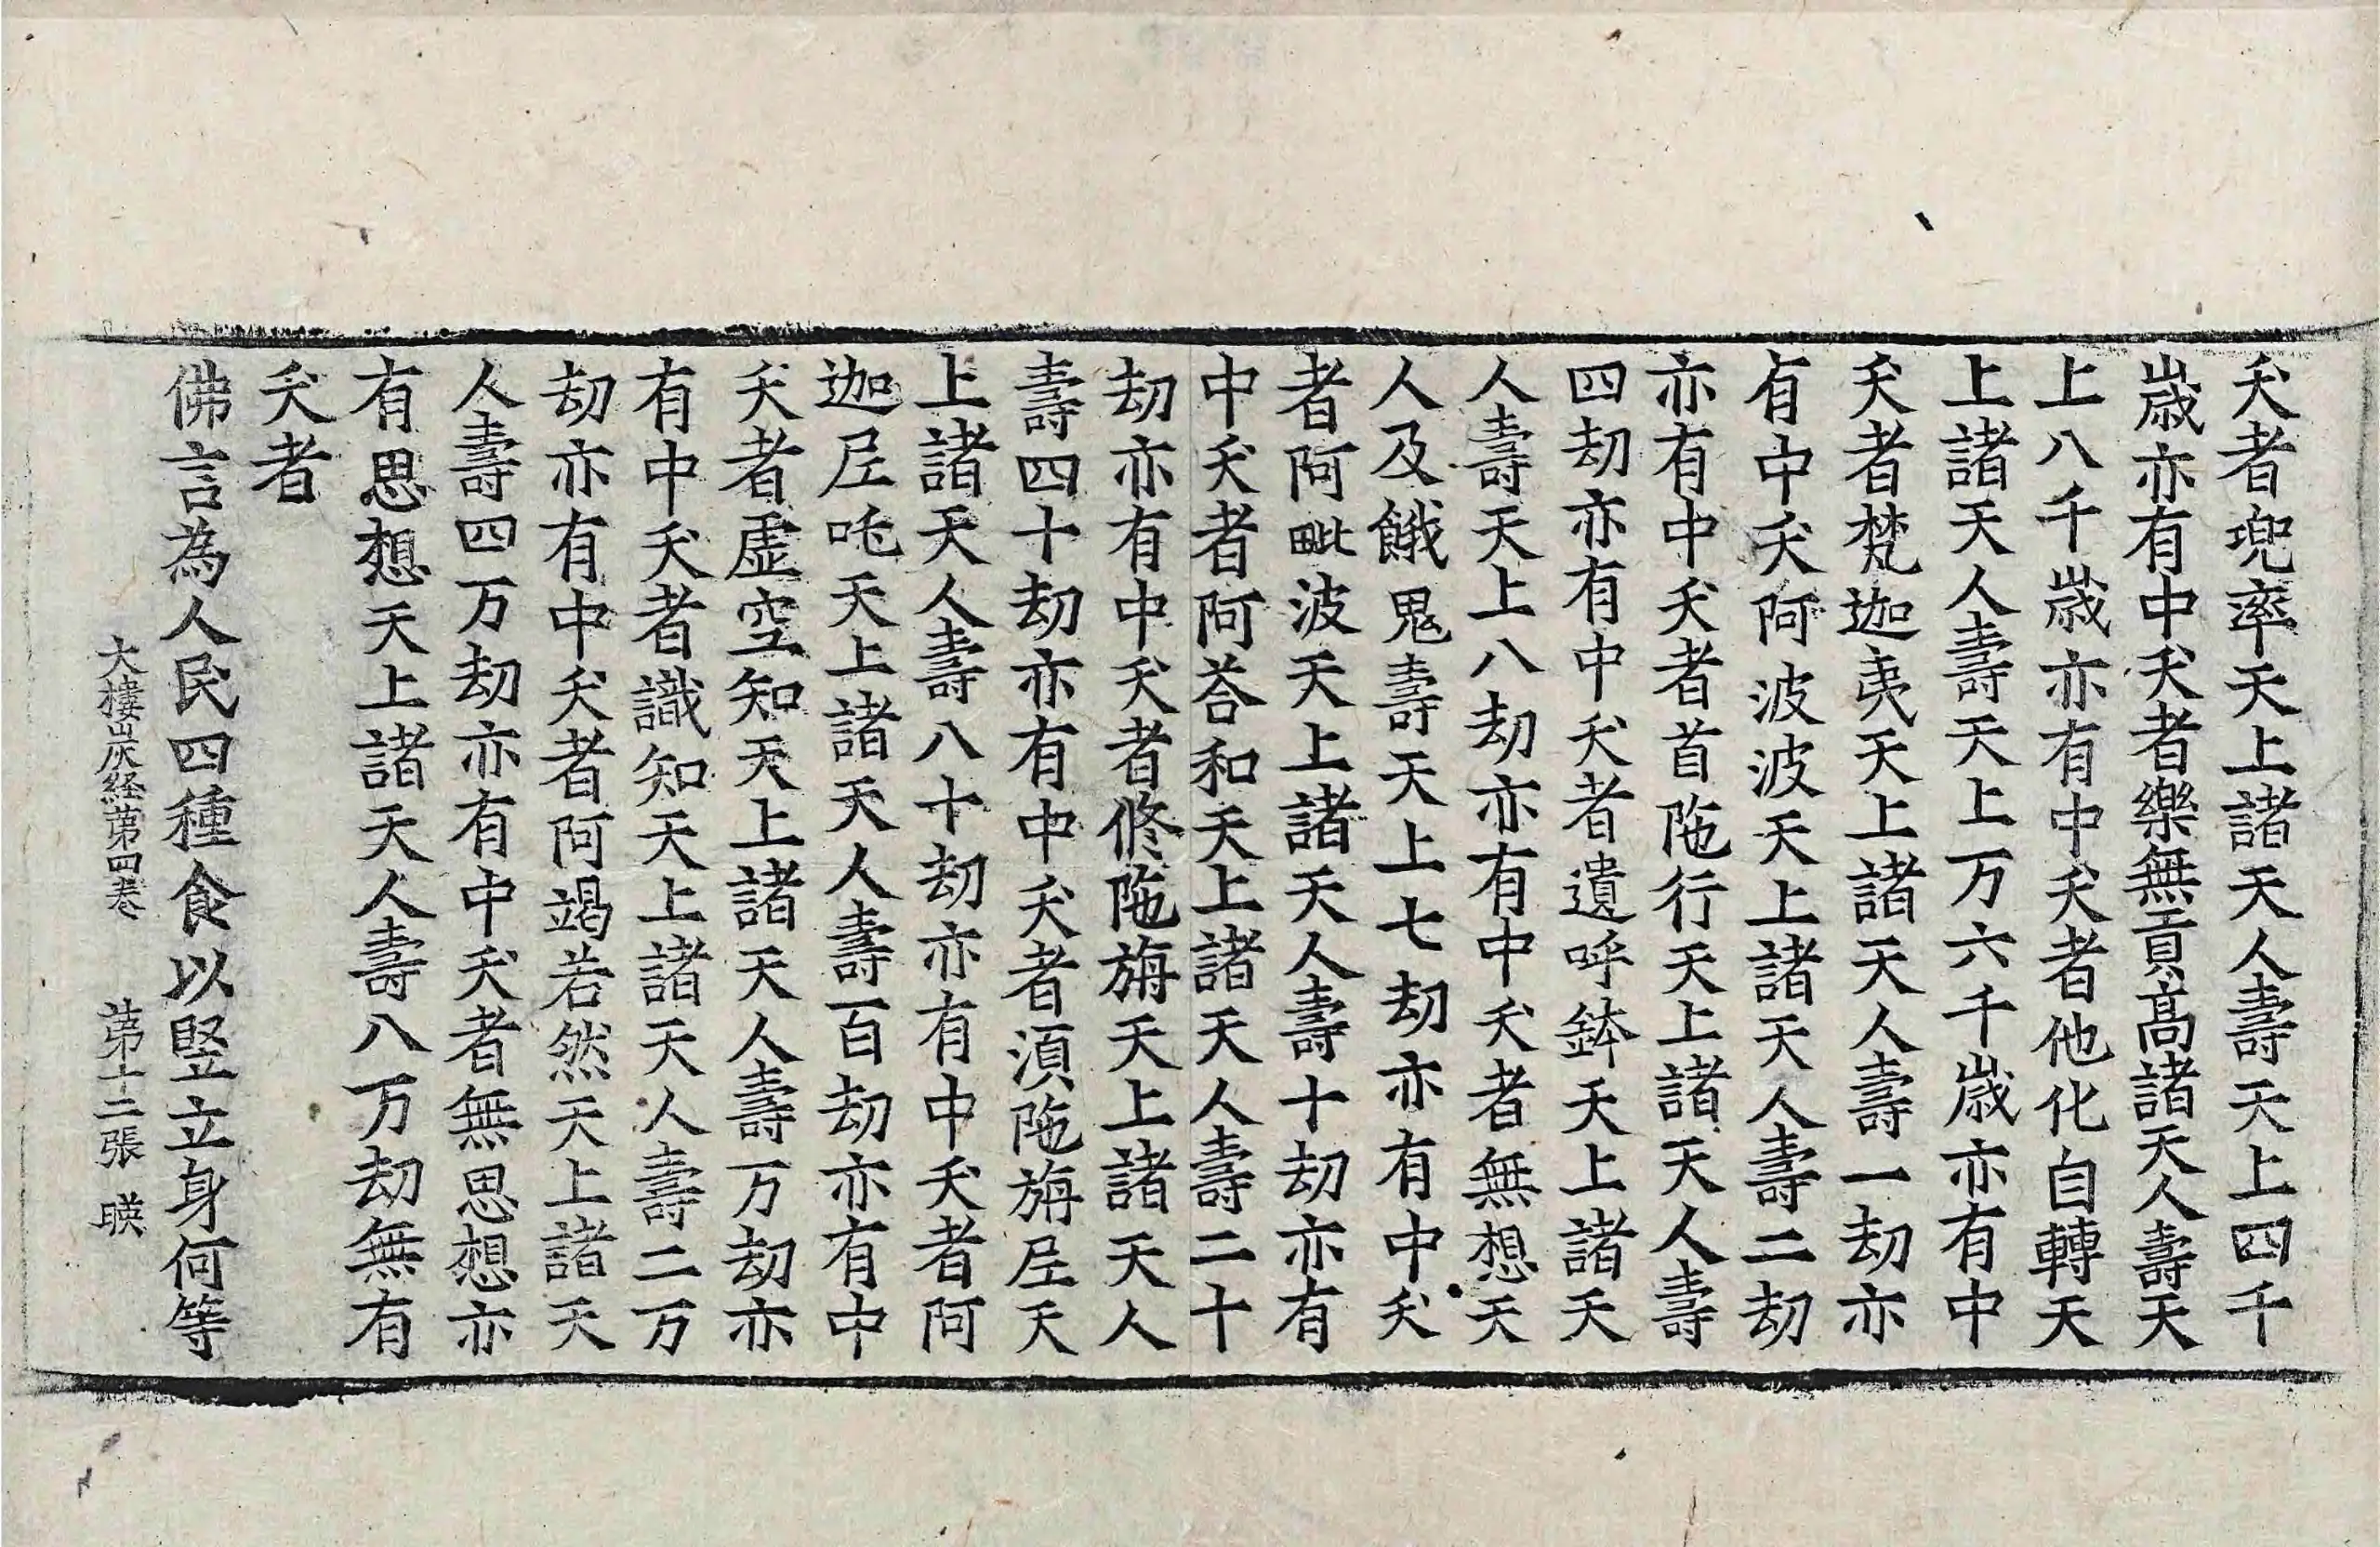 夭者兜率天上諸天人壽天上四千
歳亦有中夭者樂無貢高諸天人壽天
上八千歳亦有中夭者他化自轉天
上諸天人壽天上万六千歳亦有中
夭者梵迦夷天上諸天人壽一劫亦
有中夭阿波波天上諸天人壽二劫
亦有中夭者首陁行天上諸天人壽
四劫亦有中夭者遺呼鉢天上諸天
人壽天上八劫亦有中夭者無想天
人及餓鬼壽天上七劫亦有中夭
者阿毗波天上諸天人壽十劫亦有
中夭者阿荅和天上諸天人壽二十
劫亦有中夭者修陁旃天上諸天人
壽四十劫亦有中夭者湏陁旃𡰱天
上諸天人壽八十劫亦有中夭者阿
迦𡰱吒天上諸天人壽百劫亦有中
夭者虛空知天上諸天人壽万劫亦
有中夭者識知天上諸天人壽二万
劫亦有中夭者阿竭若然天上諸天
人壽四万劫亦有中夭者無思想亦
有思想天上諸天人壽八万劫無有
夭者
佛言為人民四種食以竪立身何等
大樓炭経第四卷 第十二張 暎